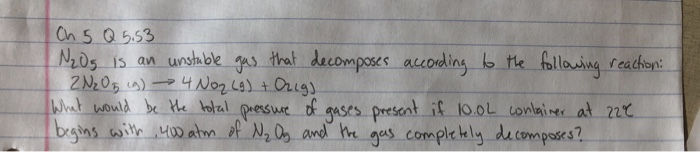 Ch 5 Q 5.53
N2O5 is an unstable gas that decomposes according to the following reaction:
2N2O5 (g) → 4 NO2 (g) + O2(g)
What would be the total pressure of gases present if 10.0L container at 22℃
begins with .400 atm of N2O5 and the gas completely decomposes?